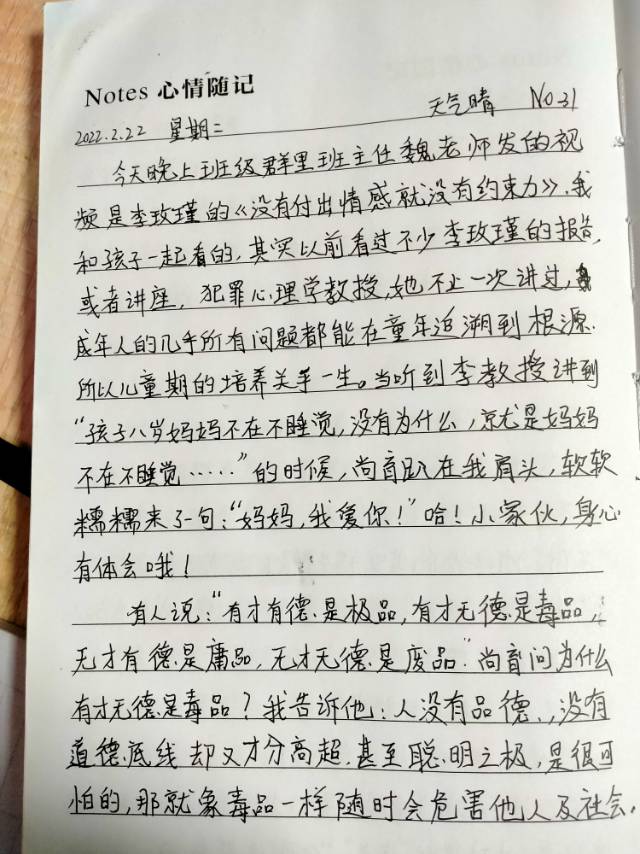 Notes 心情随记
2022.2.22 星期二 天气晴 NO31
今天晚上班级群里班主任魏老师发的视
频是李玫瑾的《没有付出情感就没有约束力》.我
和孩子一起看的,其实以前看过不少李玫瑾的报告,
或者讲座,犯罪心理学教授,她不止一次讲过,
成年人的几乎所有问题都能在童年追溯到根源.
所以儿童期的培养关乎一生。当听到李教授讲到
“孩子八岁妈妈不在不睡觉,没有为什么,就是妈妈
不在不睡觉……”的时候,尚育趴在我肩头,软软
糯糯来了一句:“妈妈,我爱你!”哈!小家伙,身心
有体会哦!
有人说:“有才有德是极品,有才无德是毒品,
无才有德是庸品,无才无德是废品”尚育问为什么
有才无德是毒品?我告诉他:人没有品德、,没有
道德底线却又才分高超,甚至聪明之极,是很可
怕的,那就象毒品一样随时会危害他人及社会.